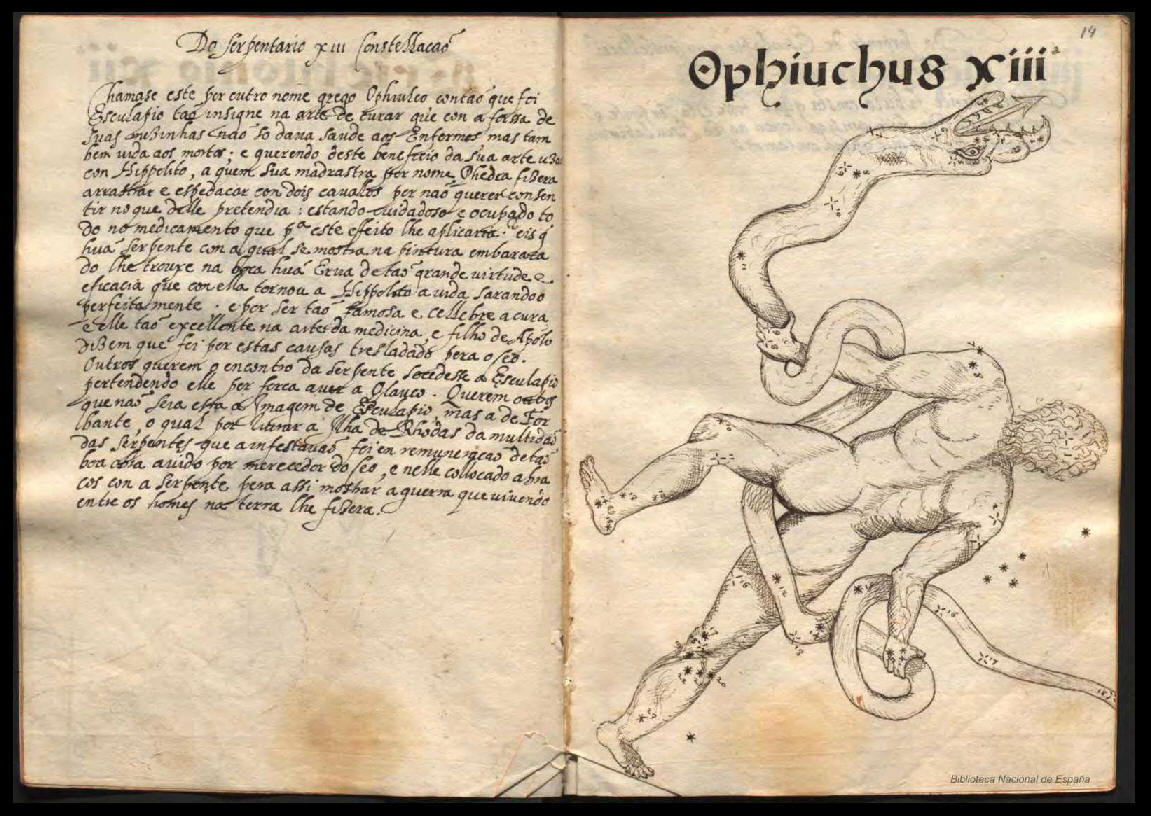 Do serpentario xiii Constellacaõ
Chamase este por outro nome grego Ophiulco contaõ que foi
Esculapio taõ insigne na arte de curar que con a forsa de
suas mezinhas naõ so daua saude aos Enfermos mas tam
bem vida aos mortos; e querendo deste beneficio da sua arte uzar
con Hippolito, a quem sua madrastra por nome Phedra fizera
arrastrar e espedacar con dois cavalos por naõ querer consen
tir no que delle pretendia: estando cuidadoso e ocupado to
do no medicamento que pª este efeito lhe aplicaria: eis q̃
huã serpente con a qual se mostra na pintura embarata
do lhe trouxe na boca huã Erua de taõ grande virtude e
eficacia que con ella tornou a Hippolito a vida sarandoo
perfeitamente. e por ser taõ famosa e cellebre a cura
e elle taõ excellente na arte da medicina, e filho de Apolo
dizem que foi por estas causas tresladado pera o seo.
Outros querem o encontro da serpente socedesse a Esculapio
pertendendo elle por forca auer a Glauco. Querem outros
que naõ seia esta a Imagem de Esculapio, mas a de For
bante, o qual por liurar a Ilha de Rhodas da multidaõ
das serpentes que a infestauaõ, foi en remuneracaõ de taõ
boa obra auido por merecedor do seo, e nelle collocado a bra
cos con a serpente pera assi mostrar a guerra que vivendo
entre os homes na terra lhe fizera.
19
Ophiuchus xiii
Biblioteca Nacional de España